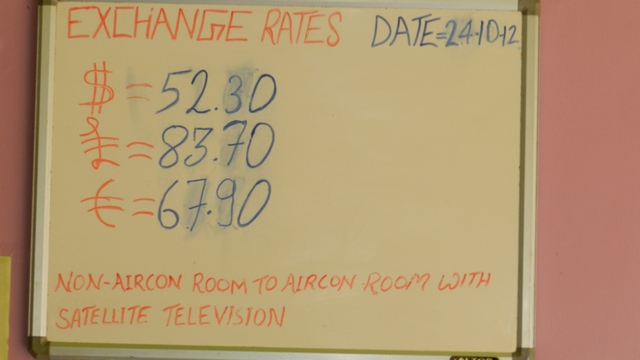 EXCHANGE RATES DATE=24.10.12
$ = 52.30
£ = 83.70
€ = 67.90
NON-AIRCON ROOM TO AIRCON ROOM WITH
SATELLITE TELEVISION